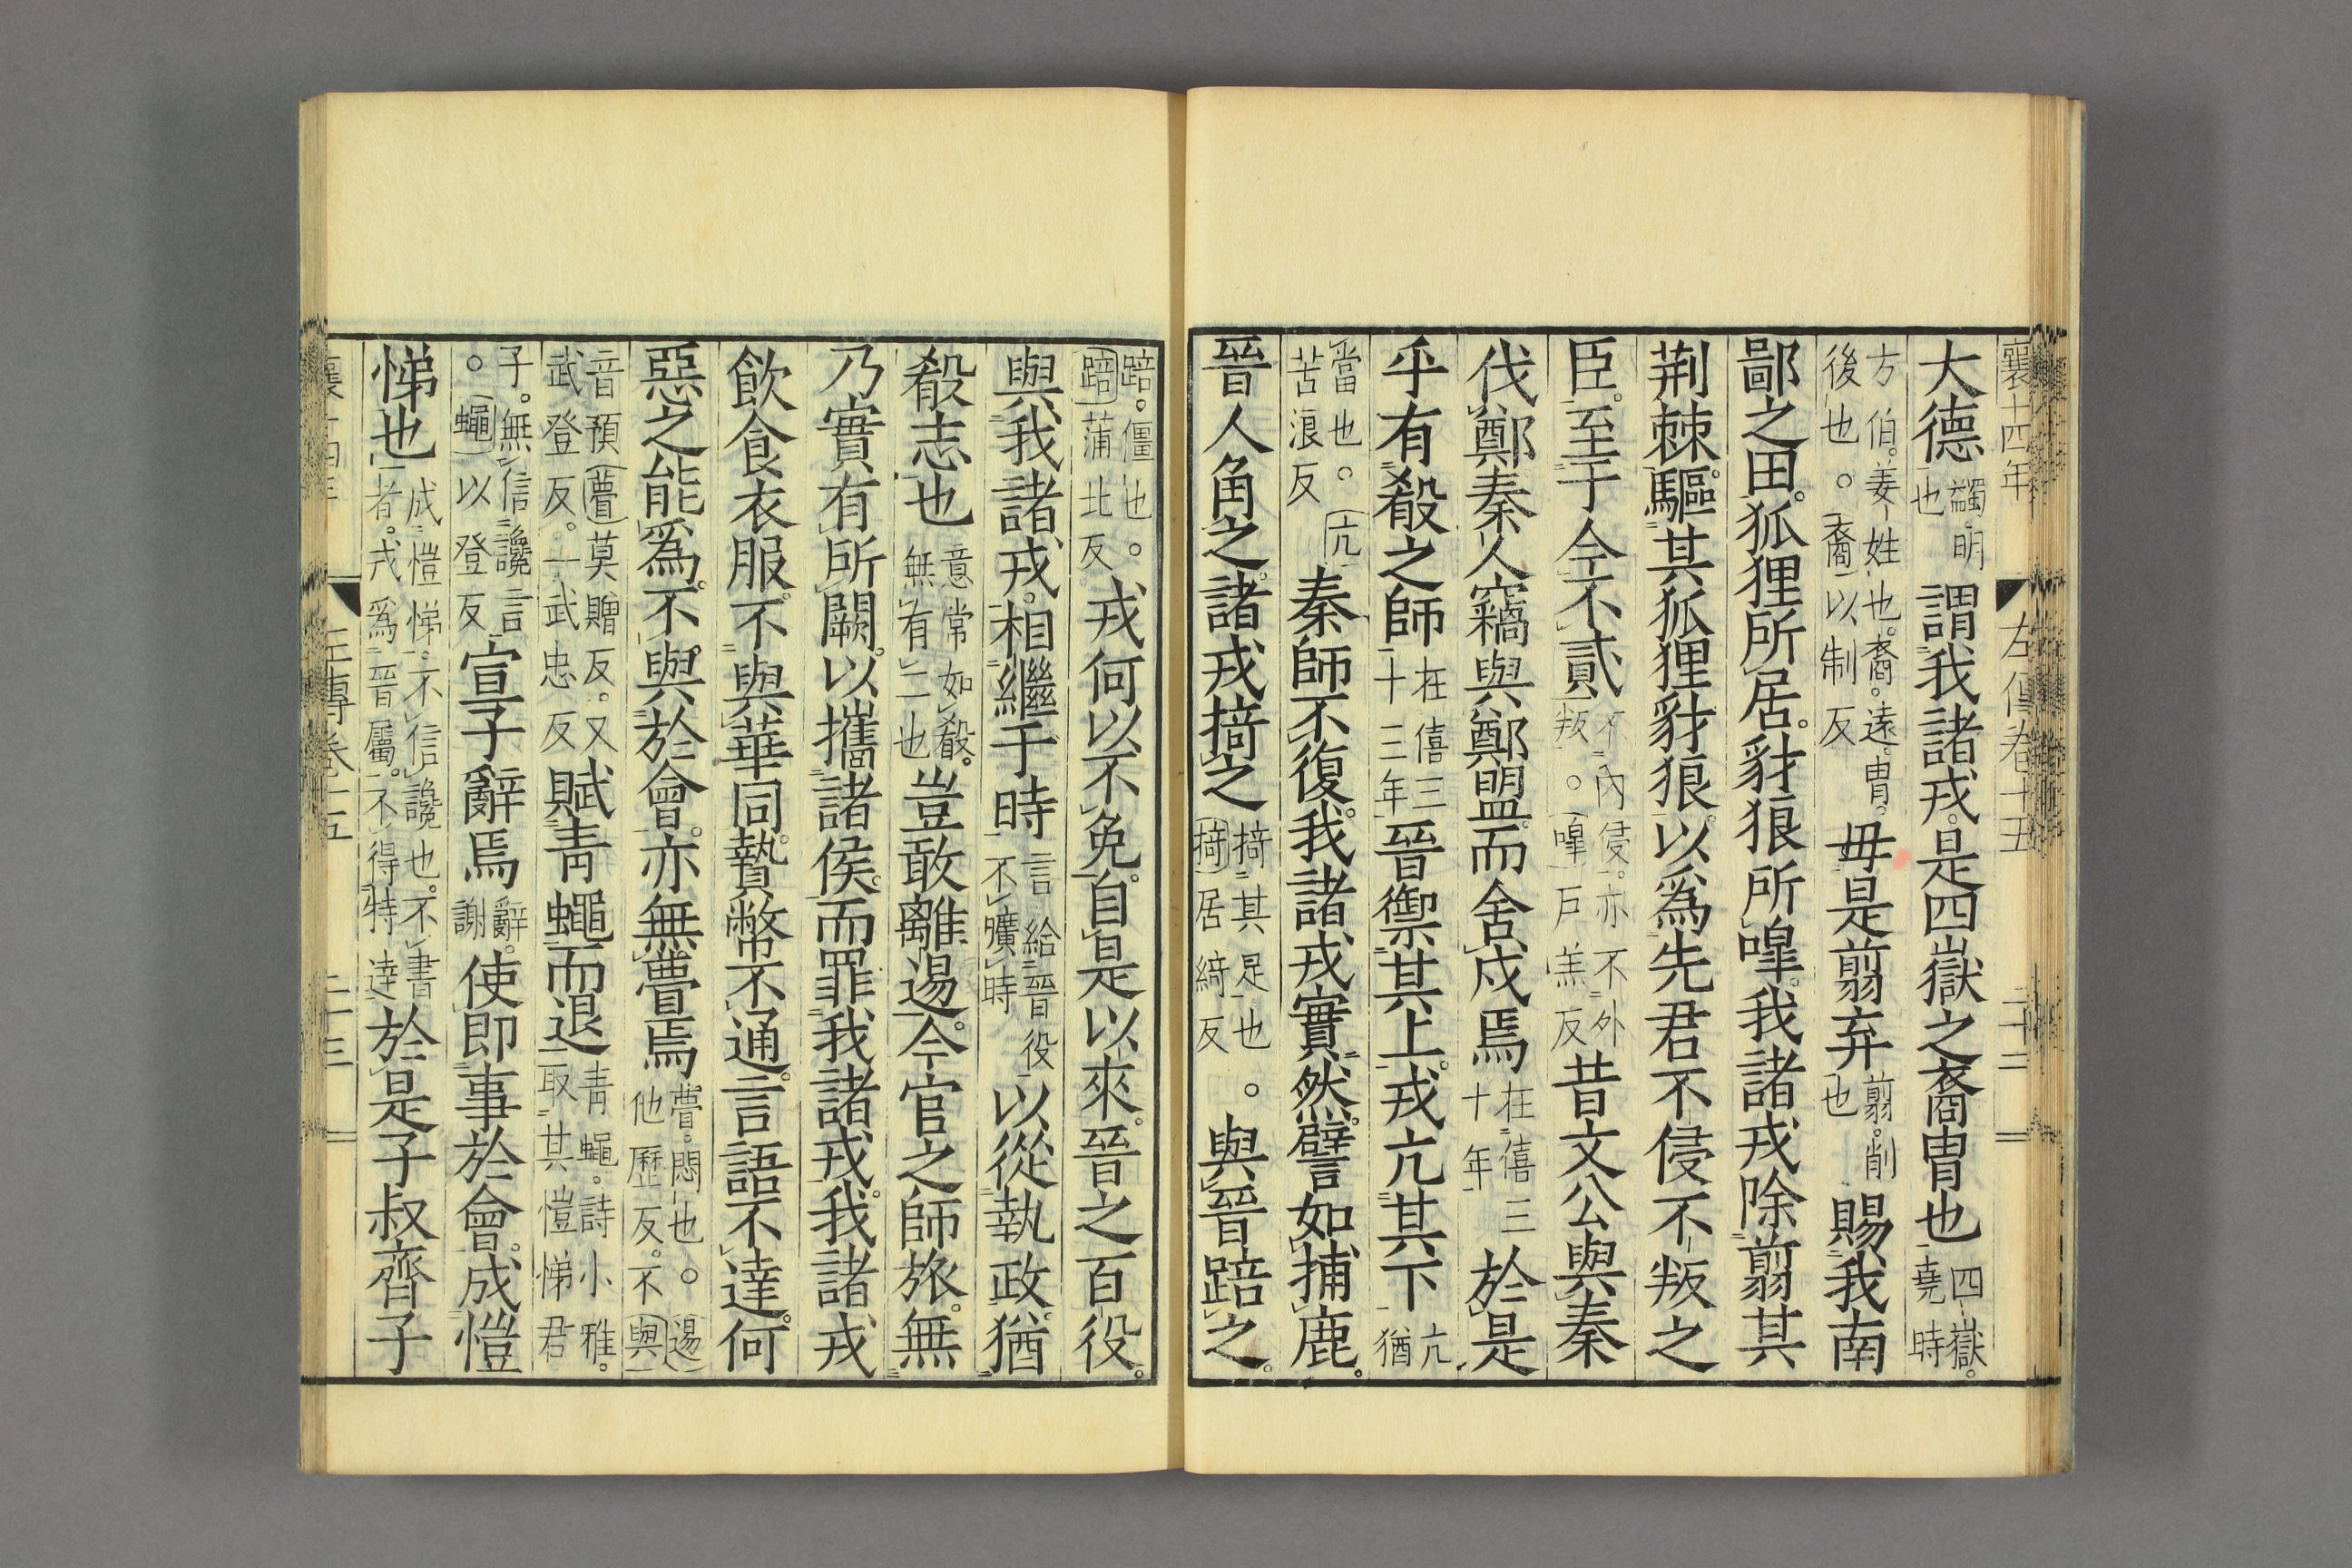 襄十四年 左傳卷十五 二十三
大德蠲明也謂我諸戎。是四嶽之裔冑也四嶽。堯時
方伯。姜姓也。裔。遠。冑。後也。○裔以制反毋是翦弃翦。削也賜我南
鄙之田。狐狸所居。豺狼所嘷。我諸戎除翦其
荆棘。驅其狐狸豺狼。以爲先君不侵不叛之
臣。至于今不貳不內侵。亦不外叛。○嘷戶羔反昔文公與秦
伐鄭秦人竊與鄭盟。而舍戍焉在僖三十年於是
乎有殽之師在僖三十三年晉禦其上。戎亢其下亢猶
當也。○亢苦浪反秦師不復。我諸戎實然。譬如捕鹿。
晉人角之。諸戎掎之掎其足也○掎居綺反與晉踣之。
踣。僵也○踣蒲北反。戎何以不免。自是以來。晉之百役。
與我諸戎。相繼于時言給晉役不曠時以從執政。猶
殽志也意常如殽。無有二也豈敢離逷。今官之師旅。無
乃實有所闕。以攜諸侯。而罪我諸戎。我諸戎
飲食衣服。不與華同。贄幣不通。言語不達。何
惡之能爲。不與於會。亦無瞢焉瞢。悶也○逷他歷反。不與
音預瞢莫贈反。又武登反。一武忠反賦青蠅而退青蠅。詩小雅。取其愷悌君
子。無信讒言○蠅以登反宣子辭焉辭。謝使即事於會。成愷
悌也成愷悌。不信讒也。不書者。戎爲晉屬。不得特達於是子叔齊子
襄十四年 左傳卷十五 二十三